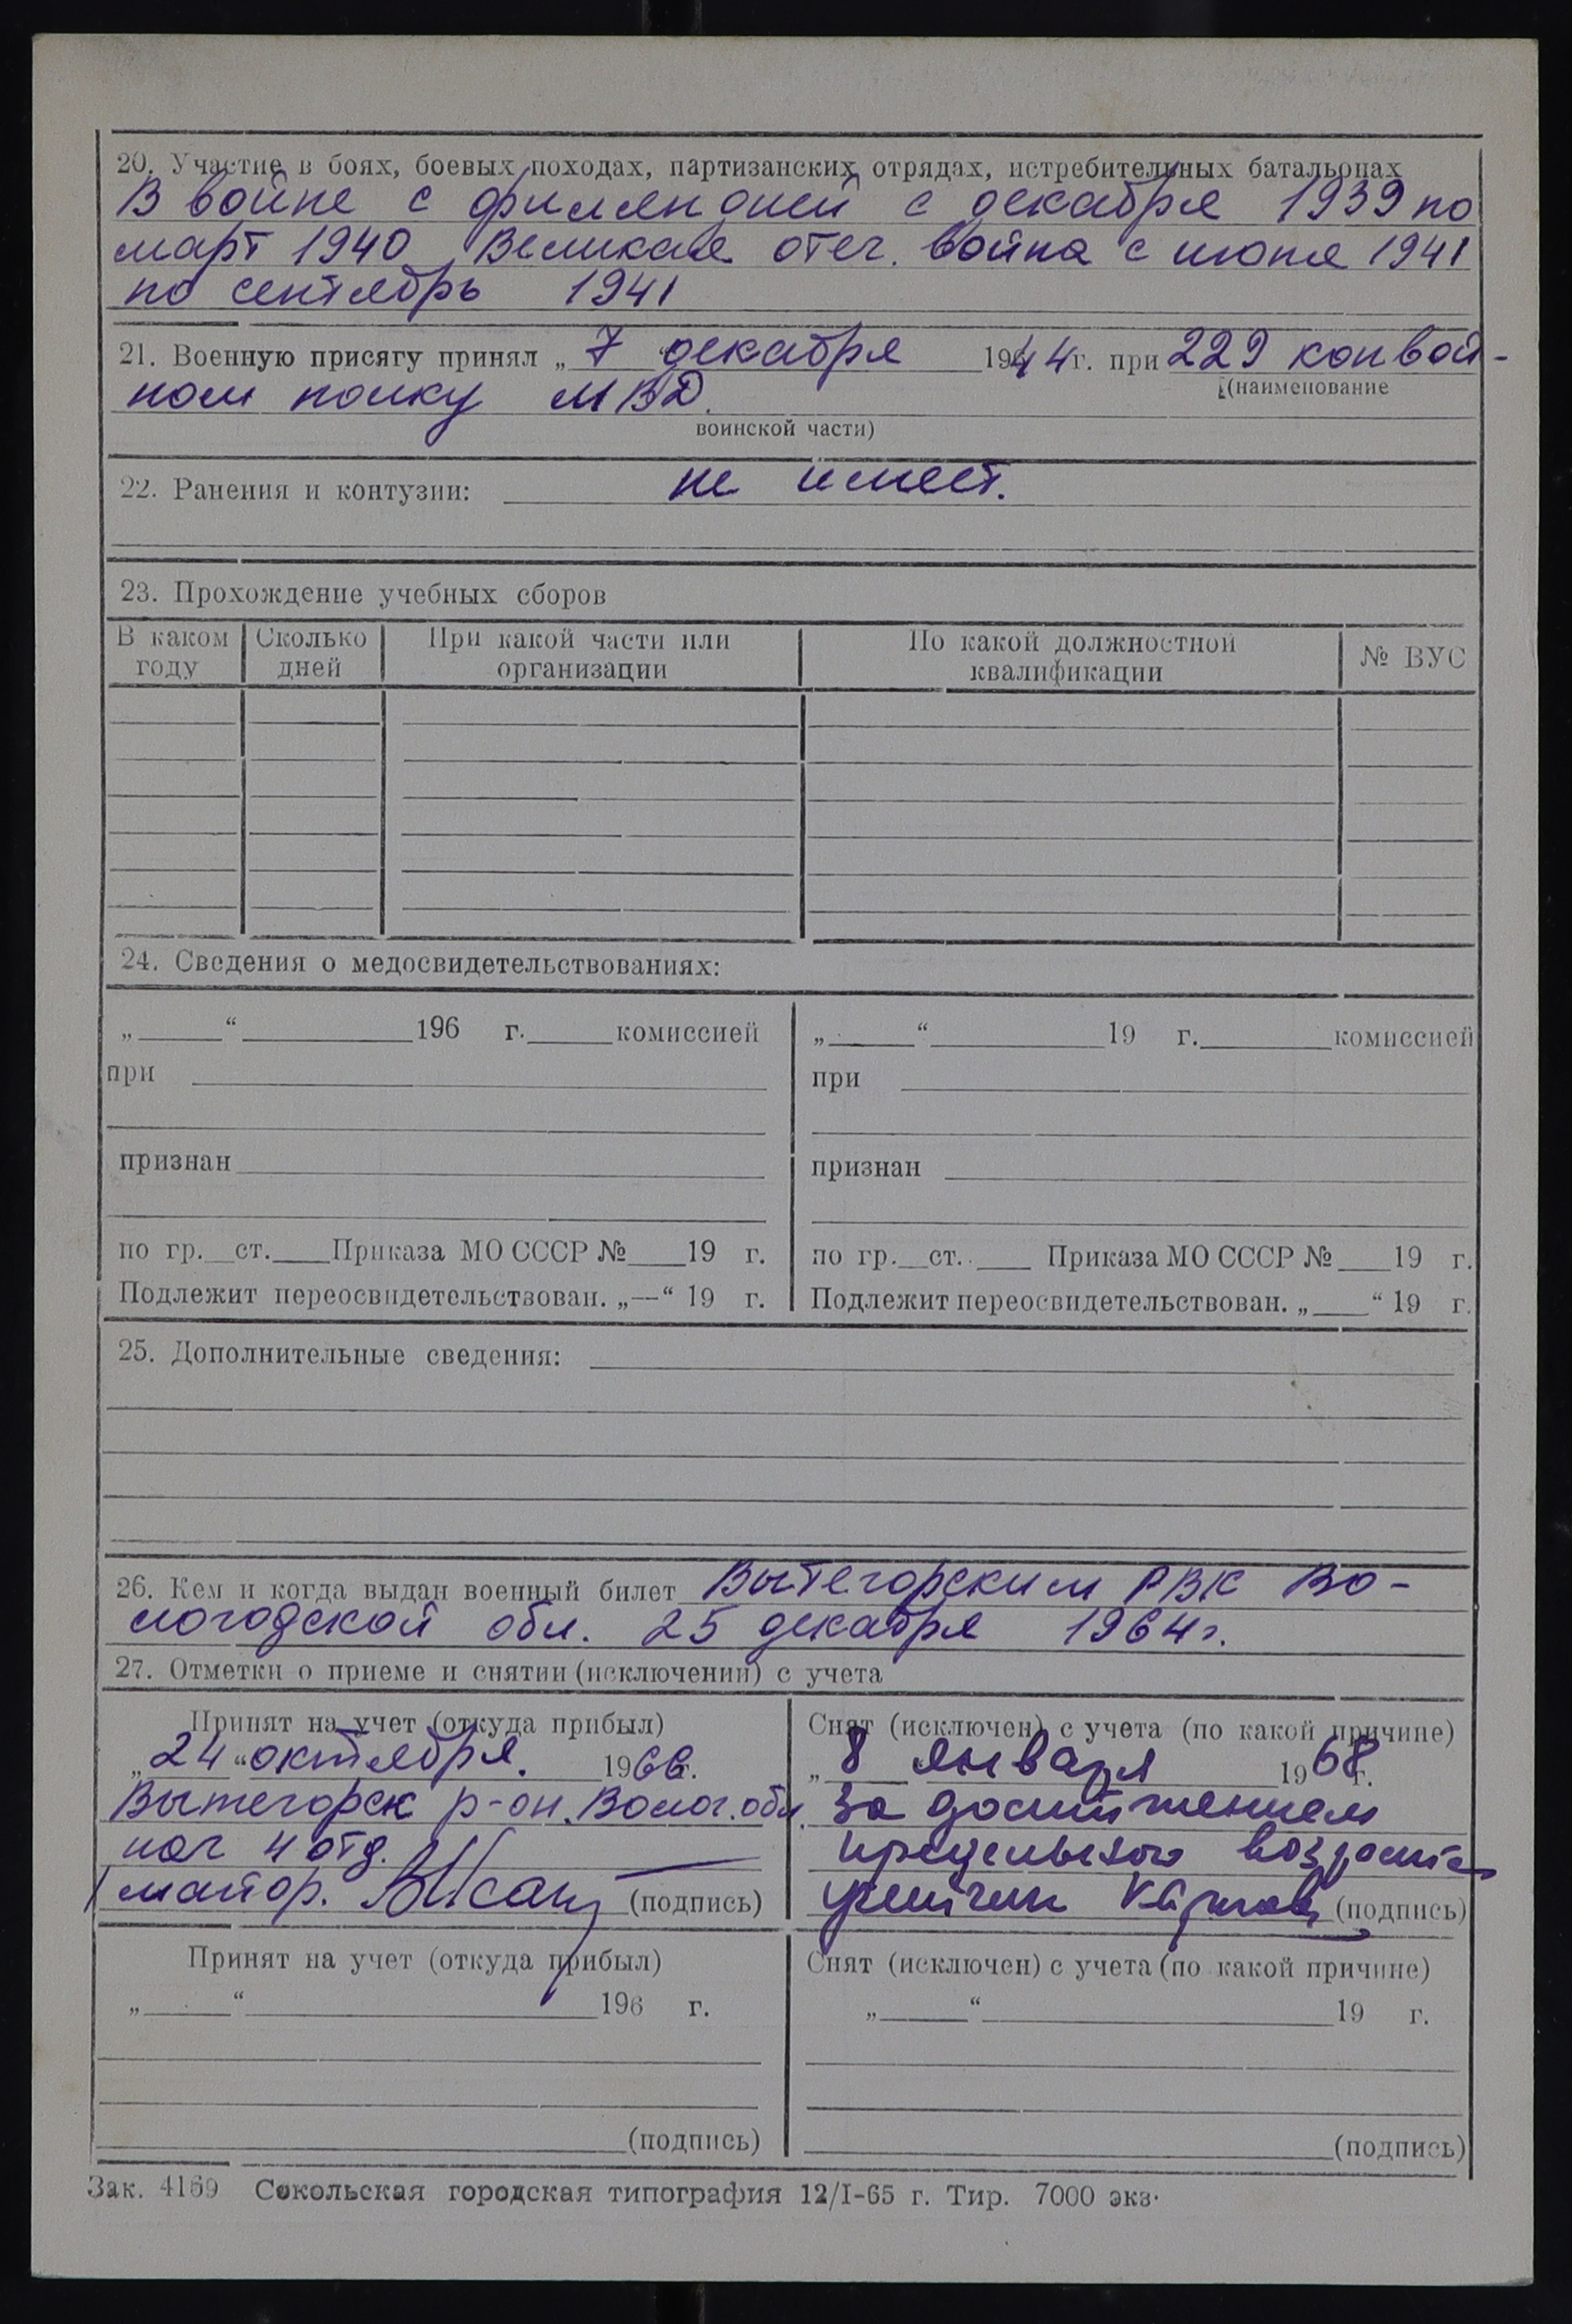 20. Участие в боях, боевых походах, партизанских отрядах, истребительных батальонах
В войне с финляндией с декабря 1939 по
март 1940 Великая отеч. война с июня 1941
по сентябрь 1941
21. Военную присягу принял „ 7 “ декабря 1944 г. при 229 конвой-
(наименование
ном полку МВД.
воинской части)
22. Ранения и контузии: не имеет.
23. Прохождение учебных сборов
В каком году Сколько дней При какой части или организации По какой должностной квалификации № ВУС
24. Сведения о медосвидетельствованиях:
„ “ 196 г. комиссией „ “ 19 г. комиссией
при при
признан признан
по гр. ст. Приказа МО СССР № 19 г. по гр. ст. Приказа МО СССР № 19 г.
Подлежит переосвидетельствован. „—“ 19 г. Подлежит переосвидетельствован. „ “ 19 г.
25. Дополнительные сведения:
26. Кем и когда выдан военный билет Вытегорским РВК Во-
логодской обл. 25 декабря 1964 г.
27. Отметки о приеме и снятии (исключении) с учета
Принят на учет (откуда прибыл)
„ 24 “ октября. 1966 г.
Вытегорск р-он. Волог. обл.
нач 4 отд.
майор. (подпись)
Снят (исключен) с учета (по какой причине)
„ 8 января 1968 г.
за достижением
предельного возраста
(подпись)
Принят на учет (откуда прибыл)
„ “ 196 г.
(подпись)
Снят (исключен) с учета (по какой причине)
„ “ 19 г.
(подпись)
Зак. 4169 Сокольская городская типография 12/I-65 г. Тир. 7000 экз.